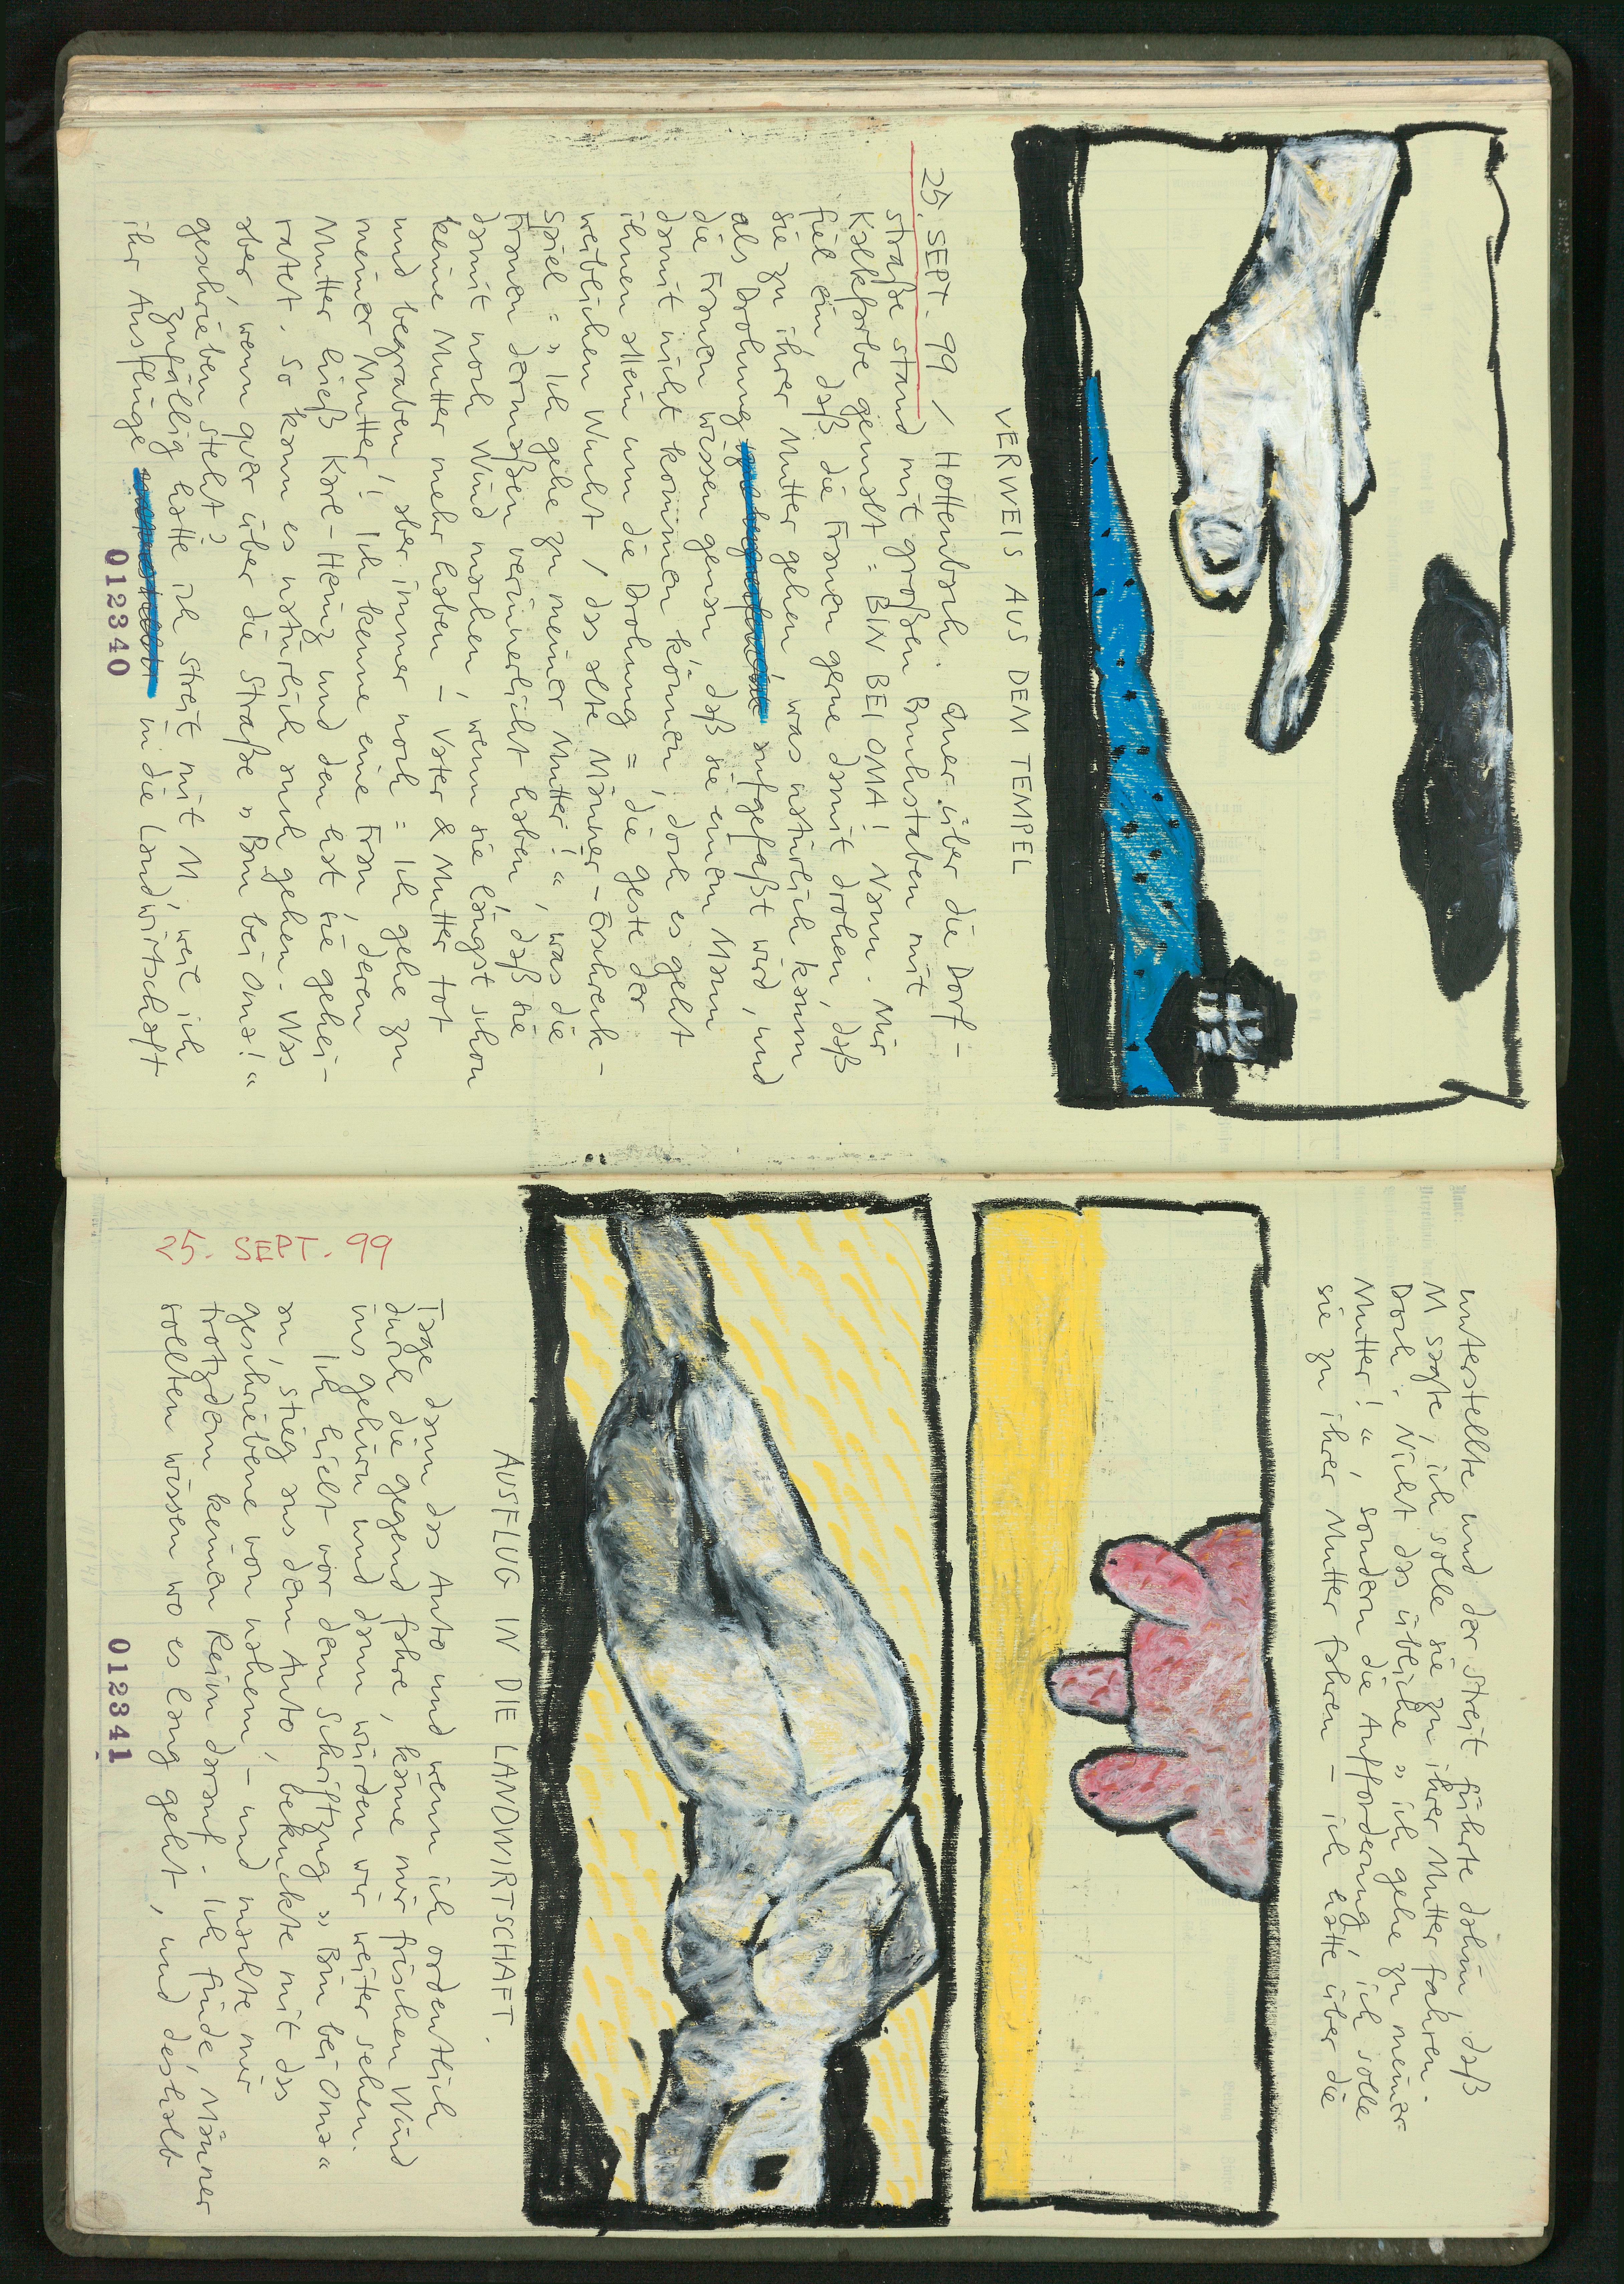 VERWEIS AUS DEM TEMPEL
25. SEPT. 99 / Hottenbach. Quer über die Dorf-
straße stand mit großen Buchstaben mit
Kalkfarbe gemalt = BIN BEI OMA! Nann. Mir
fiel ein, daß die Frauen gerne damit drohen, daß
sie zu ihrer Mutter gehen, was natürlich kaum
als Drohung aufgefaßt wird, und
die Frauen wissen genau, daß sie einem Mann
damit nicht kommen können, doch es geht
ihnen allein um die Drohung = die geste der
weiblichen Wucht / das alte Männer-Erschreck-
spiel = „Ich gehe zu meiner Mutter!“, was die
Frauen dermaßen verinnerlicht haben, daß sie
damit noch Wind machen, wenn sie längst schon
keine Mutter mehr haben – Vater & Mutter tot
und begraben, aber immer noch = Ich gehe zu
meiner Mutter! Ich kenne eine Frau, deren
Mutter hieß Karl-Heinz und den hat sie gehei-
ratet. So kann es natürlich auch gehen. Was
aber, wenn quer über die Straße „Bin bei Oma!“
geschrieben steht?
Zufällig hatte ich streit mit M, weil ich
ihr Ausflüge in die Landwirtschaft
012340
unterstellte und der streit führte dahin, daß
M sagte, ich solle sie zu ihrer Mutter fahren.
Doch: Nicht das übliche „ich gehe zu meiner
Mutter!“, sondern die Aufforderung, ich solle
sie zu ihrer Mutter fahren – ich hätte über die
AUSFLUG IN DIE LANDWIRTSCHAFT.
25. SEPT. 99
Tage dann das Auto und wenn ich ordentlich
durch die gegend fahre, käme mir frischen Wind
ins gehirn und dann würden wir weiter sehen.
Ich hielt vor dem schriftzug „Bin bei Oma“
an, stieg aus dem Auto, bekuckte mit das
geschriebene von nahem – und machte mir
trotzdem keinen Reim darauf. Ich finde, Männer
sollten wissen wo es lang geht, und deshalb
012341